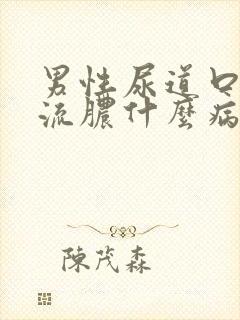 男性尿道口
流膿什麼病
陳茂森